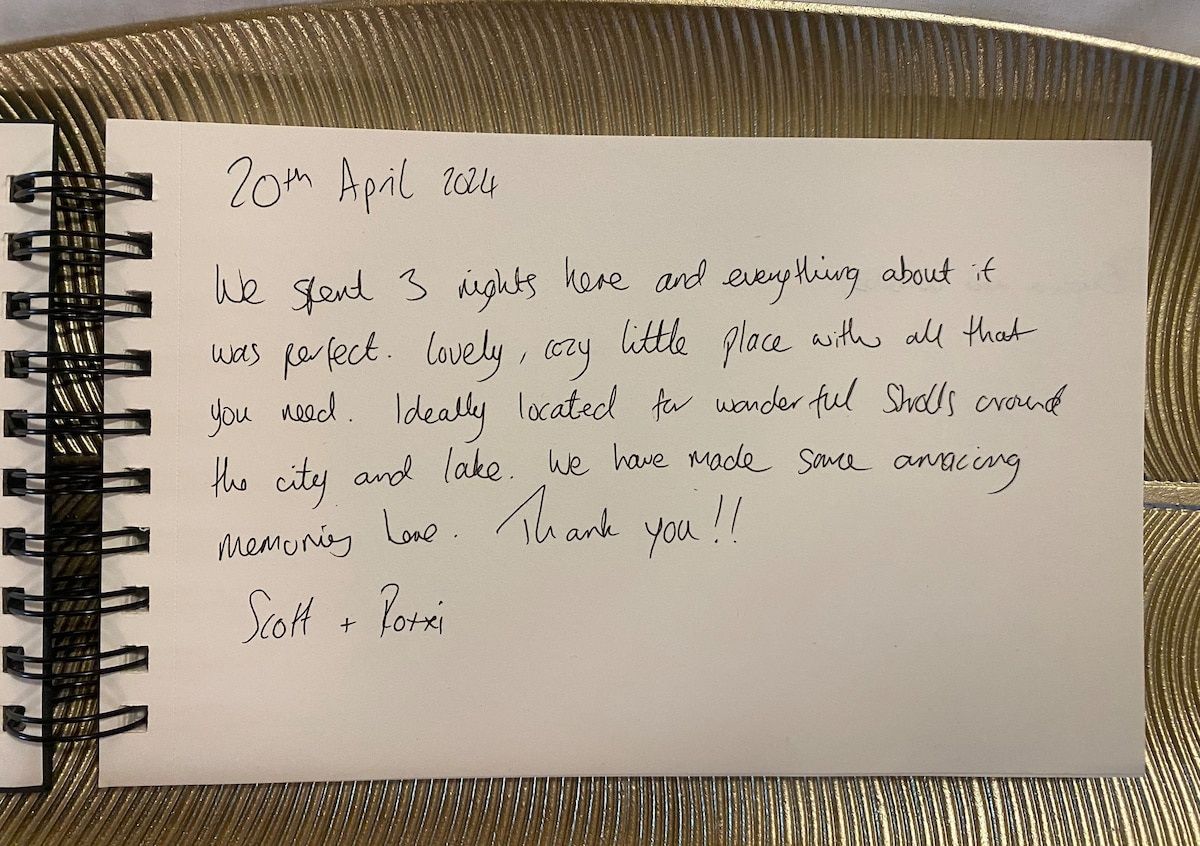 20th April 2024
We spent 3 nights here and everything about it
was perfect. Lovely, cozy little place with all that
you need. Ideally located for wonderful Strolls around
the city and lake. We have made some amazing
memories here. Thank you!!
Scott +